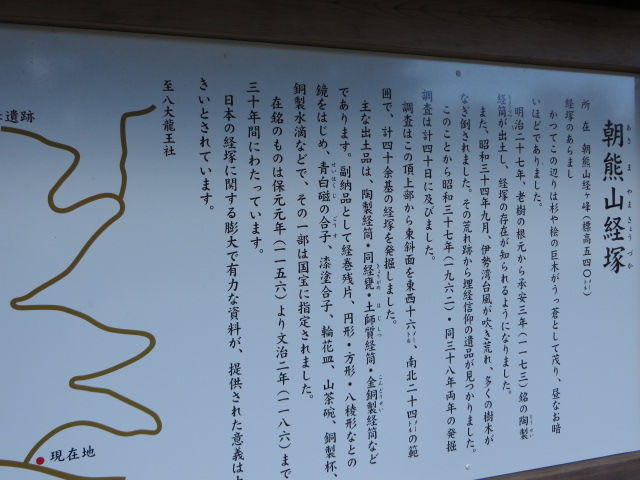 朝熊山経塚
あさまやまきょうづか
所　在　朝熊山経ヶ峰（標高五四〇㍍）
経塚のあらまし
かつてこの辺りは杉や桧の巨木がうっ蒼として茂り、昼なお暗
いほどでありました。
明治二十七年、老樹の根元から承安三年（一一七三）銘の陶製
経筒が出土し、経塚の存在が知られるようになりました。
また、昭和三十四年九月、伊勢湾台風が吹き荒れ、多くの樹木が
なぎ倒されました。その荒れ跡から埋経信仰の遺品が見つかりました。
このことから昭和三十七年（一九六二）・同三十八年両年の発掘
調査は計四十日に及びました。
調査はこの頂上部から東斜面を東西十六㍍、南北二十四㍍の範
囲で、計四十余基の経塚を発掘しました。
主な出土品は、陶製経筒・同経甕・土師質経筒・金銅製経筒など
であります。副納品として経巻残片、円形・方形・八稜形などの
鏡をはじめ、青白磁の合子、漆塗合子、輪花皿、山茶碗、銅製杯、
銅製水滴などで、その一部は国宝に指定されました。
在銘のものは保元元年（一一五六）より文治二年（一一八六）まで
三十年間にわたっています。
日本の経塚に関する膨大で有力な資料が、提供された意義は
きいとされています。
至八大龍王社
遺跡
現在地